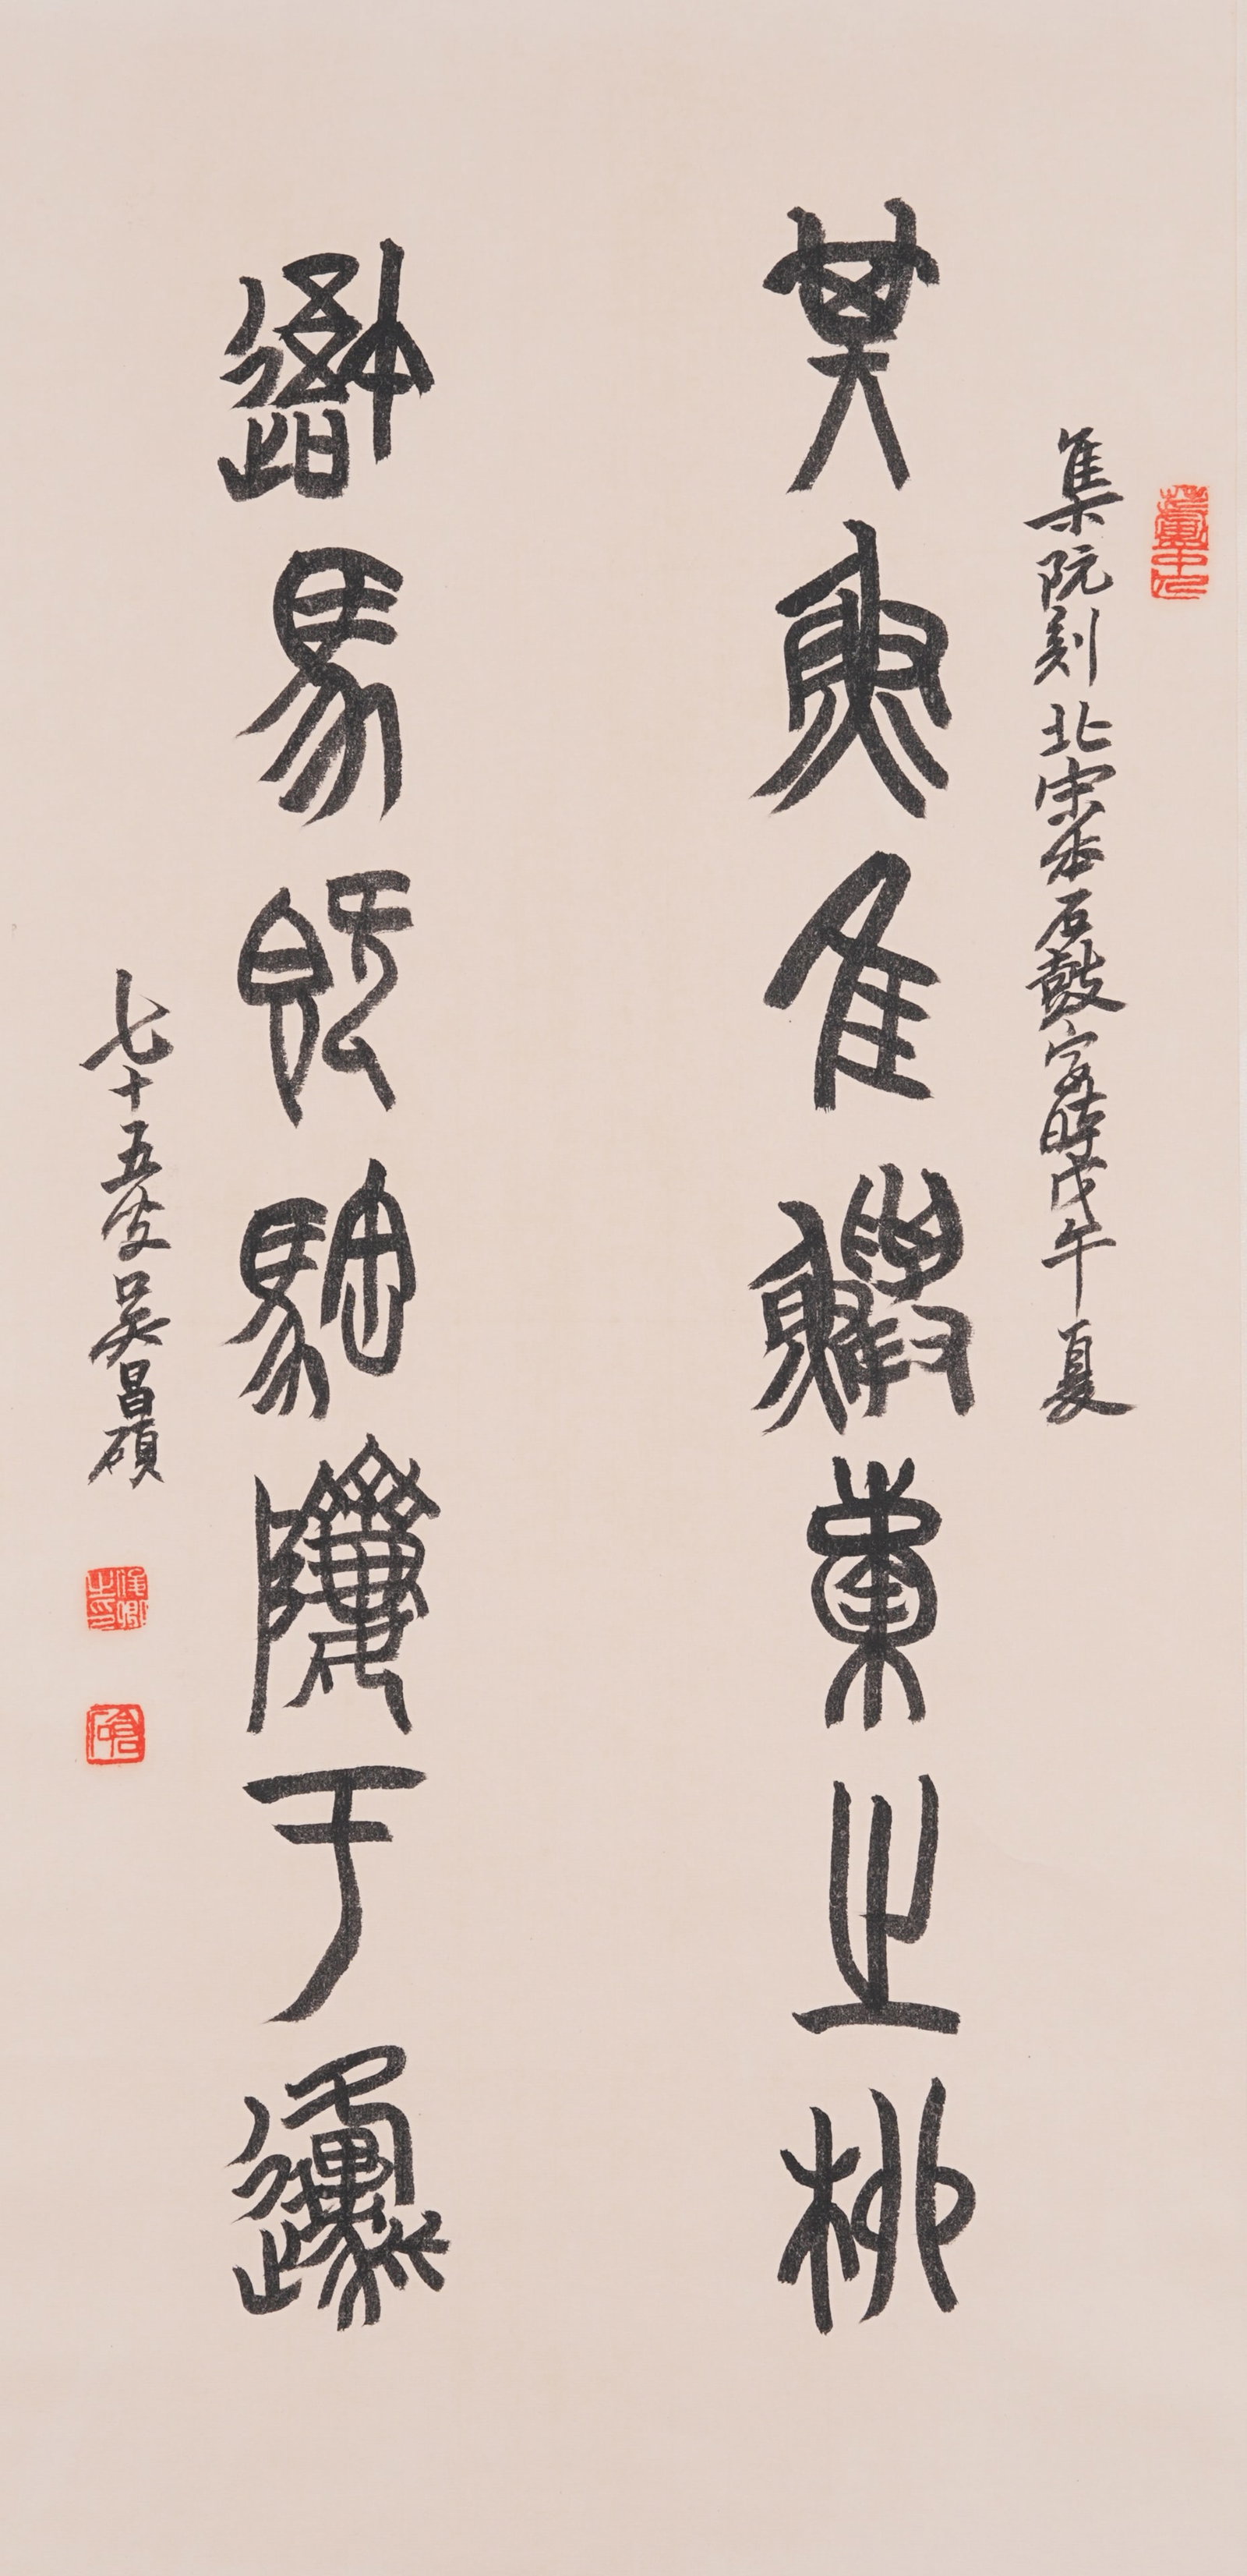 集阮刻北宋本石鼓字時戊午夏
其魚隹鱮橐之柳
馬既于邍
七十五叟吳昌碩